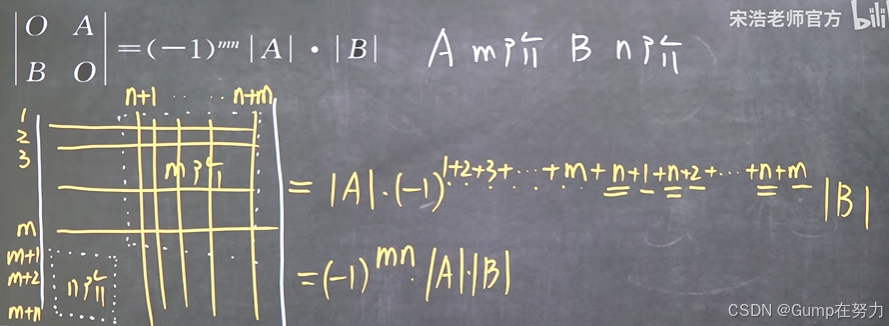 宋浩老师官方 bilibili
| O A | = (−1)^{mn} |A| · |B| A m阶 B n阶
| B O |
n+1 ····· n+m
1
2
3
m阶
= |A|·(-1)^{1+2+3+···+m+n+1+n+2+···+n+m} |B|
m
m+1
m+2
n阶
= (-1)^{mn} |A|·|B|
m+n
CSDN @Gump在努力